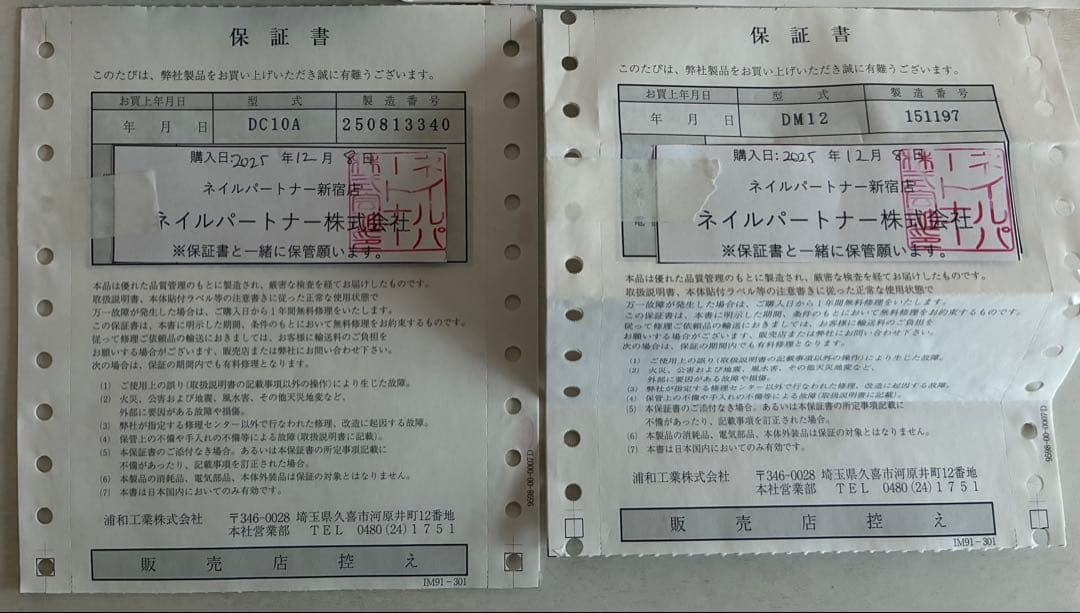 保証書
このたびは、弊社製品をお買い上げいただき誠に有難うございます。
お買上年月日 型式 製造番号
年 月 日 DC10A 250813340
購入日:2025 年12月 8日
ネイルパートナー新宿店
ネイルパートナー株式会社
※保証書と一緒に保管願います。
ネイルパ
ートナー
本品は優れた品質管理のもとに製造され、厳密な検査を経てお届けしたものです。
取扱説明書、本体貼付ラベル等の注意書きに従った正常な使用状態で
万一故障が発生した場合は、ご購入日から1年間無料修理をいたします。
この保証書は、本書に明示した期間、条件のもとにおいて無料修理をお約束するものです。
従って修理ご依頼品の輸送におきましては、お客様に輸送料のご負担を
お願いする場合がございます、販売店または弊社にお問い合わせ下さい。
次の場合は、保証の期間内でも有料修理となります。
(1) ご使用上の誤り(取扱説明書の記載事項以外の操作)により生じた故障。
(2) 火災、公害および地震、風水害、その他天災地変など、
外部に要因がある故障や損傷。
(3) 弊社が指定する修理センター以外で行なわれた修理、改造に起因する故障。
(4) 保管上の不備や手入れの不備等による故障(取扱説明書に記載)。
(5) 本保証書のご添付なき場合。あるいは本保証書の所定事項記載に
不備があったり、記載事項を訂正された場合。
(6) 本製品の消耗品、電気部品、本体外装品は保証の対象とはなりません。
(7) 本書は日本国内においてのみ有効です。
浦和工業株式会社 〒346-0028 埼玉県久喜市河原井町12番地
本社営業部 TEL 0480(24)1751
販売店控え
IM91-301
9698-00-0007D
保証書
このたびは、弊社製品をお買い上げいただき誠に有難うございます。
お買上年月日 型式 製造番号
年 月 日 DM12 151197
購入日:2025 年12月 8日
ネイルパートナー新宿店
ネイルパートナー株式会社
※保証書と一緒に保管願います。
ネイルパ
ートナー
本品は優れた品質管理のもとに製造され、厳密な検査を経てお届けしたものです。
取扱説明書、本体貼付ラベル等の注意書きに従った正常な使用状態で
万一故障が発生した場合は、ご購入日から1年間無料修理をいたします。
この保証書は、本書に明示した期間、条件のもとにおいて無料修理をお約束するものです。
従って修理ご依頼品の輸送におきましては、お客様に輸送料のご負担を
お願いする場合がございます、販売店または弊社にお問い合わせ下さい。
次の場合は、保証の期間内でも有料修理となります。
(1) ご使用上の誤り(取扱説明書の記載事項以外の操作)により生じた故障。
(2) 火災、公害および地震、風水害、その他天災地変など、
外部に要因がある故障や損傷。
(3) 弊社が指定する修理センター以外で行なわれた修理、改造に起因する故障。
(4) 保管上の不備や手入れの不備等による故障(取扱説明書に記載)。
(5) 本保証書のご添付なき場合。あるいは本保証書の所定事項記載に
不備があったり、記載事項を訂正された場合。
(6) 本製品の消耗品、電気部品、本体外装品は保証の対象とはなりません。
(7) 本書は日本国内においてのみ有効です。
浦和工業株式会社 〒346-0028 埼玉県久喜市河原井町12番地
本社営業部 TEL 0480(24)1751
販売店控え
IM91-301
9698-00-0007D